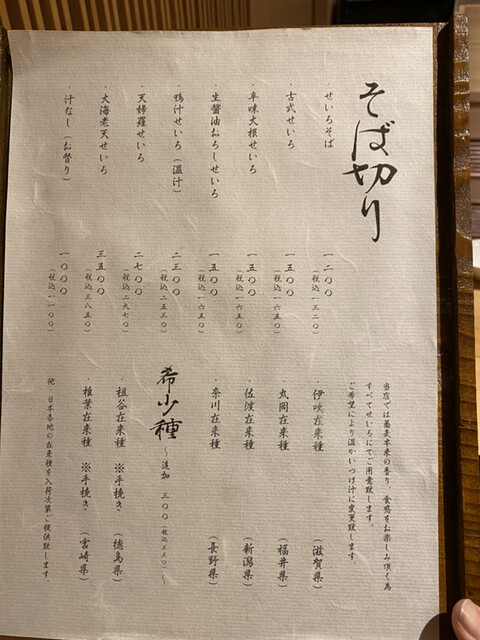 そば切り
せいろそば 一二〇〇
(税込一三二〇)
・古武せいろ 一五〇〇
(税込一六五〇)
・辛味大根せいろ 一五〇〇
(税込一六五〇)
生醤油おろしせいろ 一五〇〇
(税込一六五〇)
・鴨汁せいろ(温汁) 二三〇〇
(税込二五三〇)
・天婦羅せいろ 二七〇〇
(税込二九七〇)
・大海老天せいろ 三五〇〇
(税込三八五〇)
・汁なし(お替り) 一〇〇〇
(税込一一〇〇)
当店では蕎麦本来の香り、食感をお楽しみ頂く為
すべてせいろにてご用意致します。
ご希望により温かいつけ汁に変更致します
・伊吹在来種 (滋賀県)
・丸岡在来種 (福井県)
・佐渡在来種 (新潟県)
・奈川在来種 (長野県)
希少種 ~追加 三〇〇(税込三三〇)~
・祖谷在来種 ※手挽き (徳島県)
・椎葉在来種 ※手挽き (宮崎県)
他、日本各地の在来種を入荷次第ご提供致します。